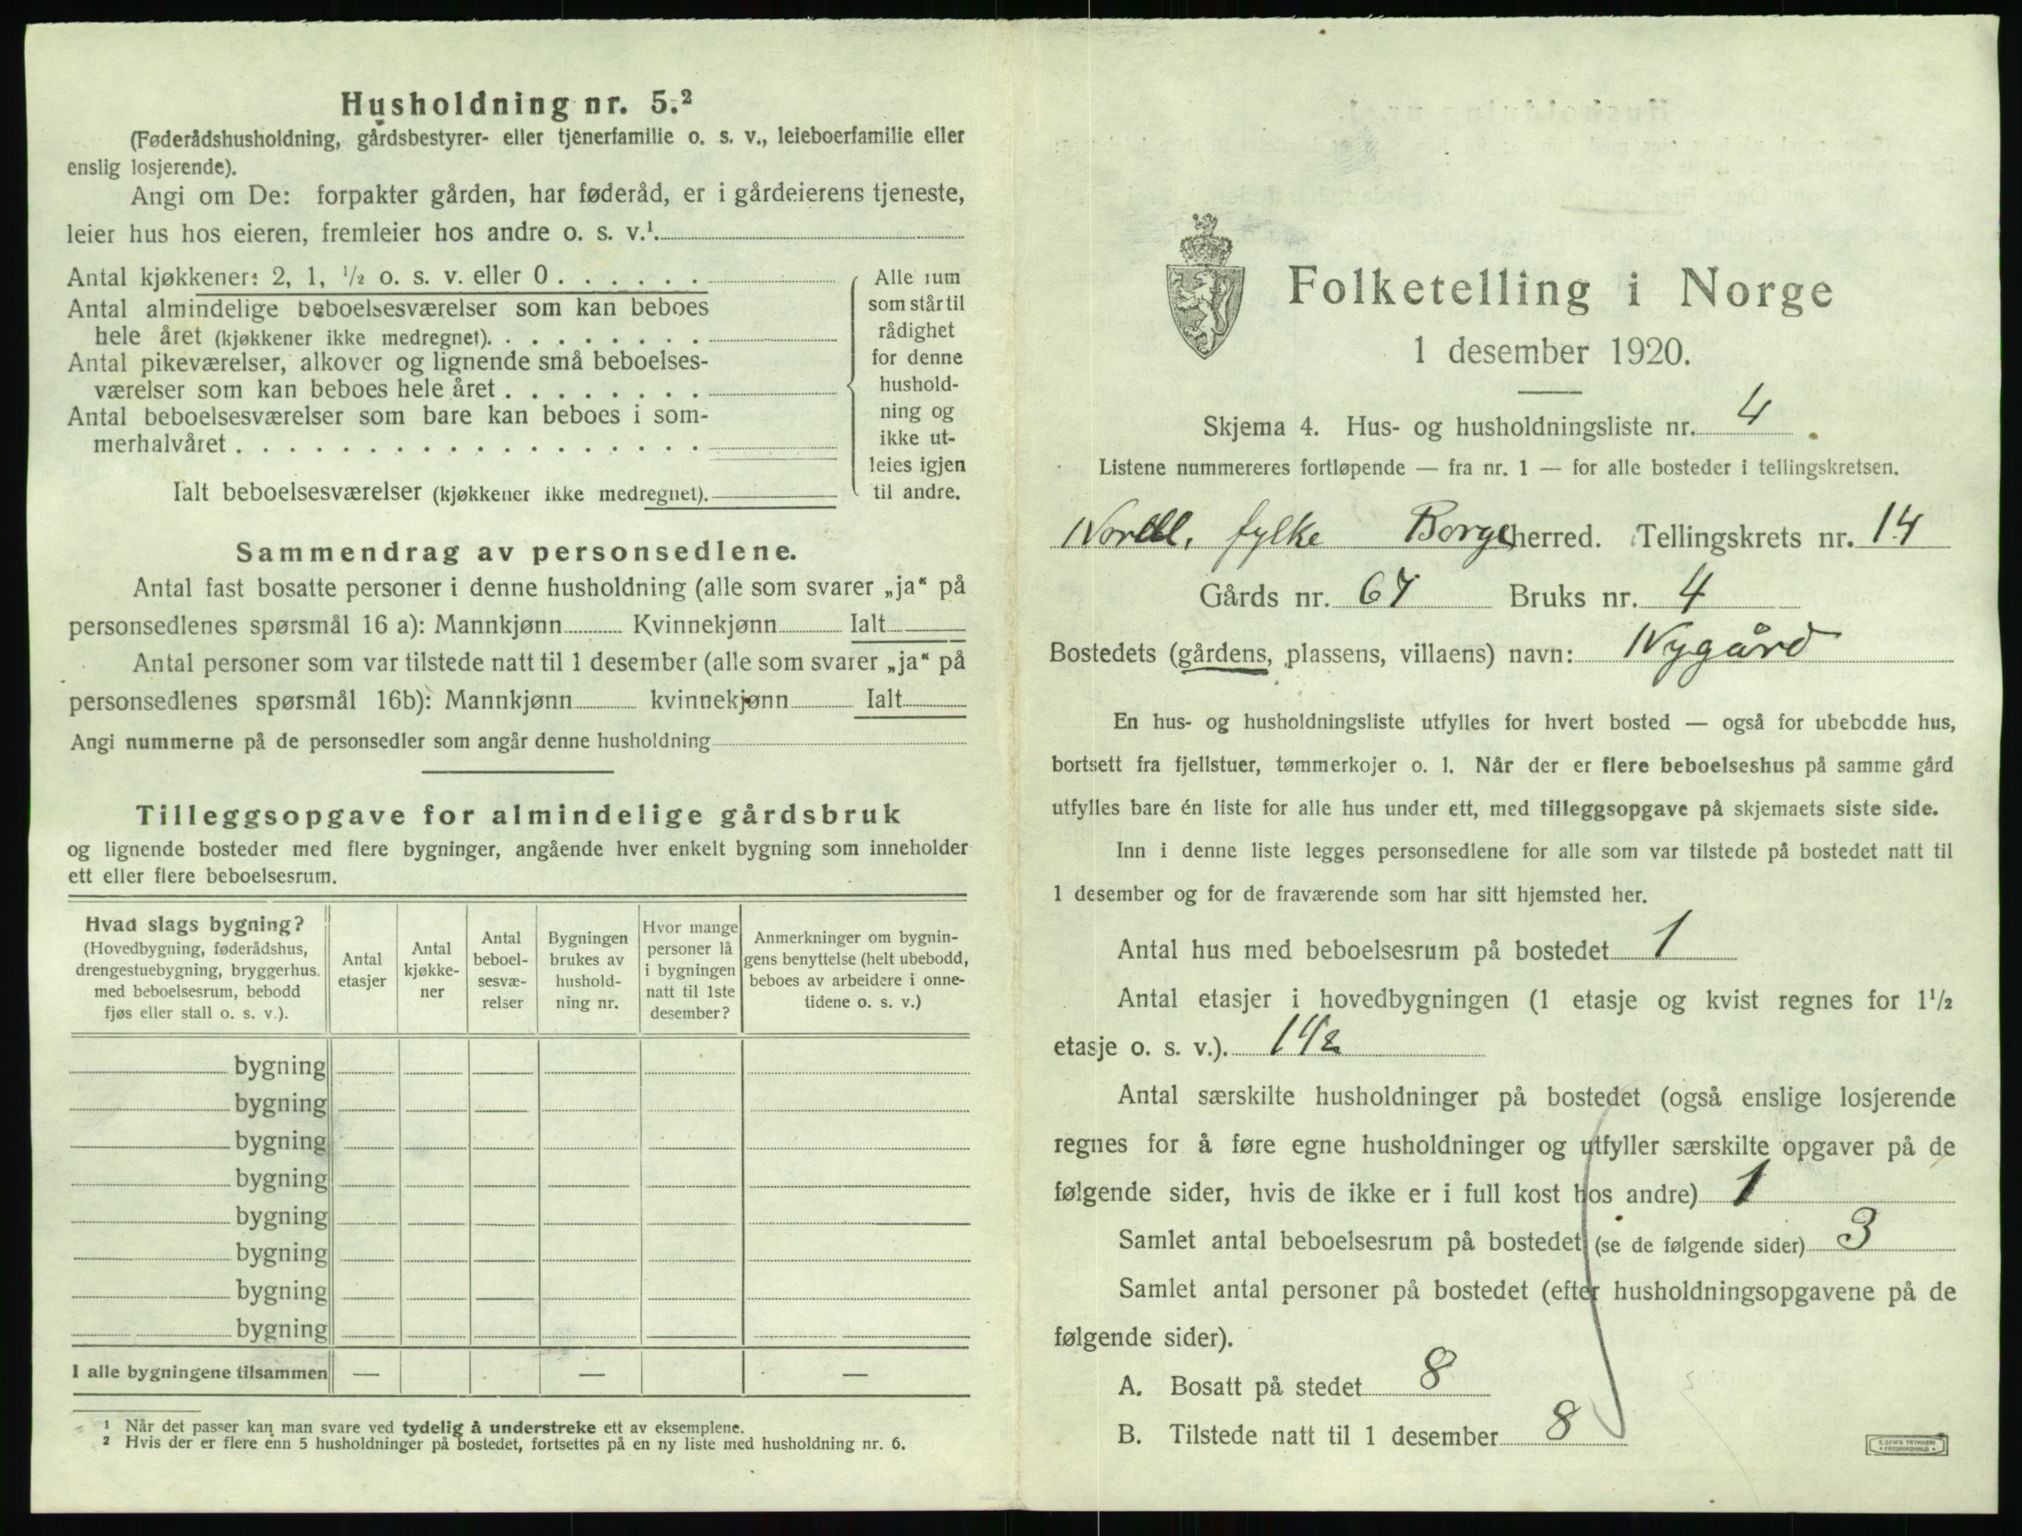 Husholdning nr. 5.²
(Føderådshusholdning, gårdsbestyrer- eller tjenerfamilie o. s. v., leieboerfamilie eller
enslig losjerende).
Angi om De: forpakter gården, har føderåd, er i gårdeierens tjeneste,
leier hus hos eieren, fremleier hos andre o. s. v.¹
Antal kjøkkener: 2, 1, ½ o. s. v. eller 0 . . . . . .
Antal almindelige beboelsesværelser som kan beboes
hele året (kjøkkener ikke medregnet). . . . . . . . .
Antal pikeværelser, alkover og lignende små beboelses-
værelser som kan beboes hele året . . . . . . . .
Antal beboelsesværelser som bare kan beboes i som-
merhalvåret . . . . . . . . . . . . . . . . . .
Ialt beboelsesværelser (kjøkkener ikke medregnet).
Alle rum
som står til
rådighet
for denne
hushold-
ning og
ikke ut-
leies igjen
til andre.
Sammendrag av personsedlene.
Antal fast bosatte personer i denne husholdning (alle som svarer „ja“ på
personsedlenes spørsmål 16 a): Mannkjønn Kvinnekjønn Ialt
Antal personer som var tilstede natt til 1 desember (alle som svarer „ja“ på
personsedlenes spørsmål 16b): Mannkjønn kvinnekjønn Ialt
Angi nummerne på de personsedler som angår denne husholdning
Tilleggsopgave for almindelige gårdsbruk
og lignende bosteder med flere bygninger, angående hver enkelt bygning som inneholder
ett eller flere beboelsesrum.
Hvad slags bygning?
(Hovedbygning, føderådshus,
drengestuebygning, bryggerhus.
med beboelsesrum, bebodd
fjøs eller stall o. s. v.).
Antal
etasjer
Antal
kjøkke-
ner
Antal
beboel-
sesvæ-
relser
Bygningen
brukes av
hushold-
ning nr.
Hvor mange
personer lå
i bygningen
natt til 1ste
desember?
Anmerkninger om bygnin-
gens benyttelse (helt ubebodd,
beboes av arbeidere i onne-
tidene o. s. v.)
bygning
bygning
bygning
bygning
bygning
bygning
bygning
bygning
I alle bygningene tilsammen — — —
¹ Når det passer kan man svare ved tydelig å understreke ett av eksemplene.
² Hvis der er flere enn 5 husholdninger på bostedet, fortsettes på en ny liste med husholdning nr. 6.
Folketelling i Norge
1 desember 1920.
Skjema 4. Hus- og husholdningsliste nr. 4
Listene nummereres fortløpende — fra nr. 1 — for alle bosteder i tellingskretsen.
Nordl. fylke Borge herred. Tellingskrets nr. 14
Gårds nr. 67 Bruks nr. 4
Bostedets (gårdens, plassens, villaens) navn: Nygård
En hus- og husholdningsliste utfylles for hvert bosted — også for ubebodde hus,
bortsett fra fjellstuer, tømmerkojer o. l. Når der er flere beboelseshus på samme gård
utfylles bare én liste for alle hus under ett, med tilleggsopgave på skjemaets siste side.
Inn i denne liste legges personsedlene for alle som var tilstede på bostedet natt til
1 desember og for de fraværende som har sitt hjemsted her.
Antal hus med beboelsesrum på bostedet 1
Antal etasjer i hovedbygningen (1 etasje og kvist regnes for 1½
etasje o. s. v.). 1½
Antal særskilte husholdninger på bostedet (også enslige losjerende
regnes for å føre egne husholdninger og utfyller særskilte opgaver på de
følgende sider, hvis de ikke er i full kost hos andre) 1
Samlet antal beboelsesrum på bostedet (se de følgende sider) 3
Samlet antal personer på bostedet (efter husholdningsopgavene på de
følgende sider).
A. Bosatt på stedet 8
B. Tilstede natt til 1 desember 8
E. SEM'S TRYKKERI
FREDRIKSHALD